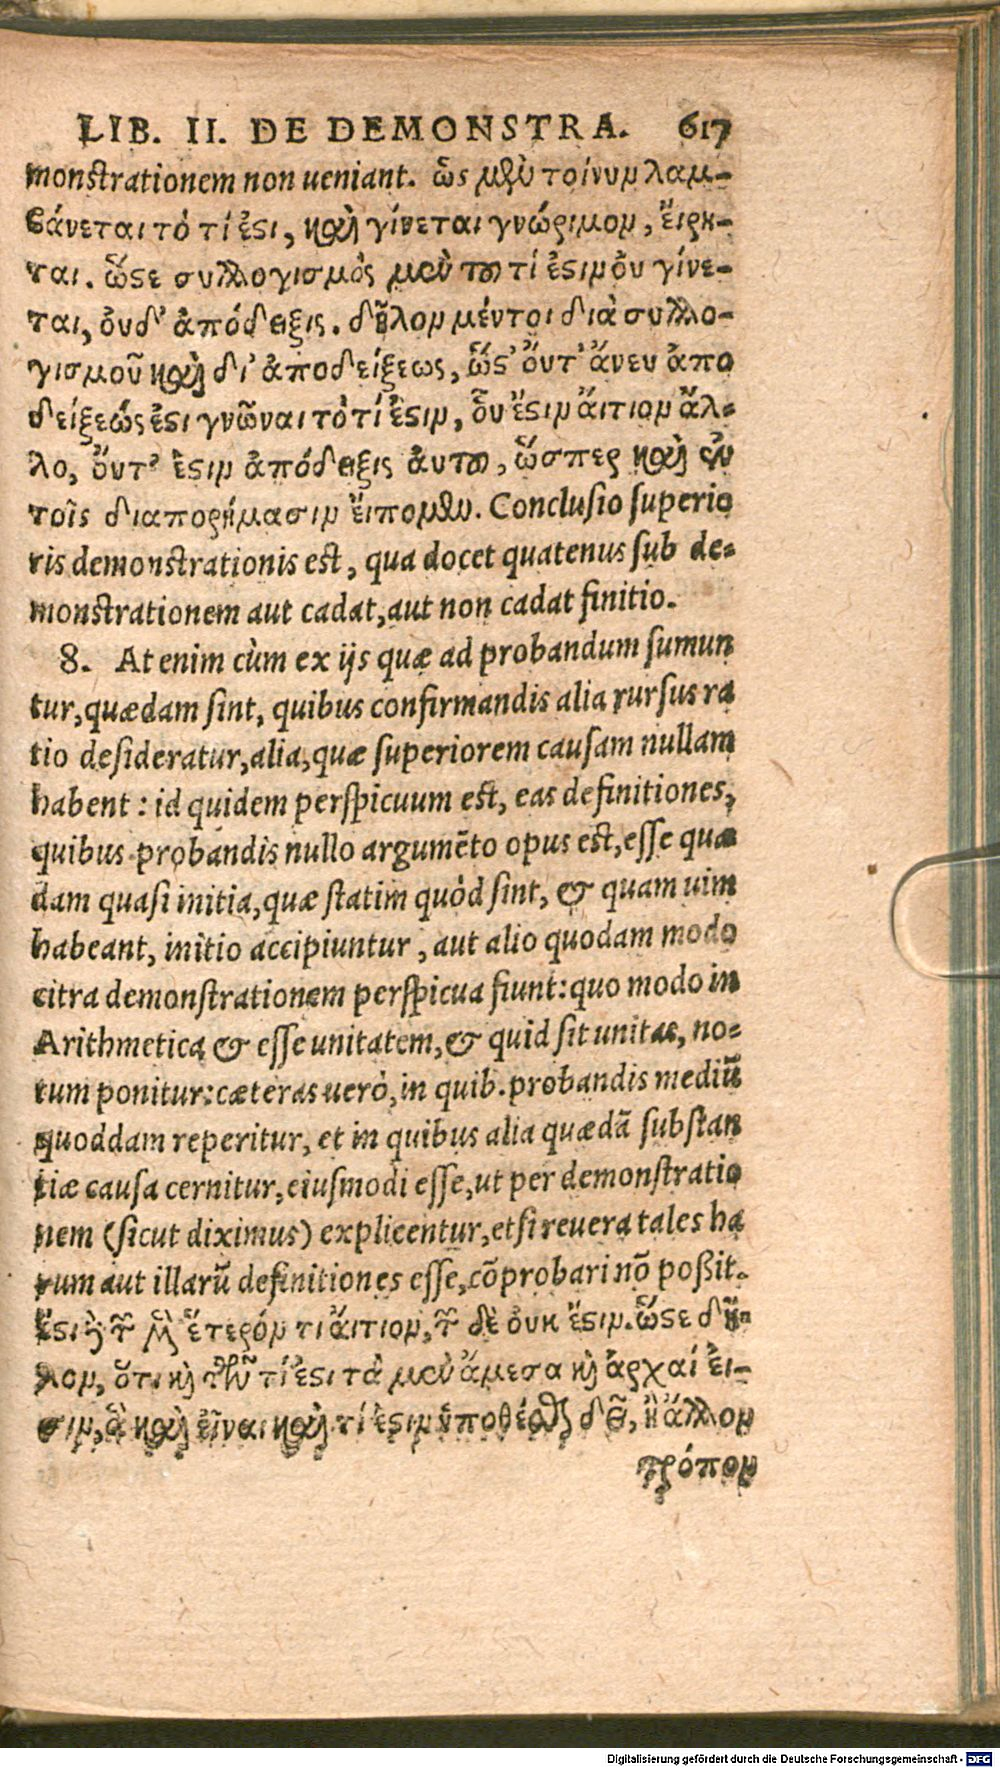 LIB. II. DE DEMONSTRA. 617
monstrationem non ueniant. ὡς μὲν τοίνυν λαμ-
βάνεται τὸ τί ἐστι, καὶ γίνεται γνώριμον, ἔιρη-
ται. ὥστε συλλογισμὸς μὲν τοῦ τί ἐστιν ὀυ γίνε-
ται, ὀυδ' ἀπόδειξις. δῆλον μέντοι διὰ συλλο-
γισμοῦ καὶ δι' ἀποδείξεως, ὥστ' ὄυτ' ἄνευ ἀπο
δείξεώς ἐστι γνῶναι τὸ τί ἐστιν, ὅυ ἔστιν ἄιτιον ἄλ-
λο, ὄυτ' ἔστιν ἀπόδειξις ἀυτοῦ, ὥσπερ καὶ ἐν
τοῖς διαπορήμασιν ἔιπομεν. Conclusio superio
ris demonstrationis est, qua docet quatenus sub de-
monstrationem aut cadat, aut non cadat finitio.
8. At enim cùm ex ijs quæ ad probandum sumun
tur, quædam sint, quibus confirmandis alia rursus ra
tio desideratur, alia, quæ superiorem causam nullam
habent: id quidem perspicuum est, eas definitiones,
quibus probandis nullo argumēto opus est, esse quæ
dam quasi initia, quæ statim quòd sint, & quam uim
habeant, initio accipiuntur, aut alio quodam modo
citra demonstrationem perspicua fiunt: quo modo in
Arithmetica & esse unitatem, & quid sit unitas, no-
tum ponitur: cæteras uerò, in quib. probandis mediū
quoddam reperitur, et in quibus alia quædā substan
tiæ causa cernitur, eiusmodi esse, ut per demonstratio
nem (sicut diximus) explicentur, etsi reuera tales ha
rum aut illarū definitiones esse, cōprobari nō poßit.
Ἔστι δὲ τῶν μὲν ἕτερόν τι ἄιτιον, τῶν δὲ ὀυκ ἔστιν. ὥστε δῆ-
λον, ὅτι καὶ τῶν τί ἐστι τὰ μὲν ἄμεσα καὶ ἀρχαί ἐι-
σιν, ἃ καὶ εἶναι καὶ τί ἐστιν ὑποθέσθαι δεῖ, ἢ ἄλλον
τρόπον
Digitalisierung gefördert durch die Deutsche Forschungsgemeinschaft - DFG